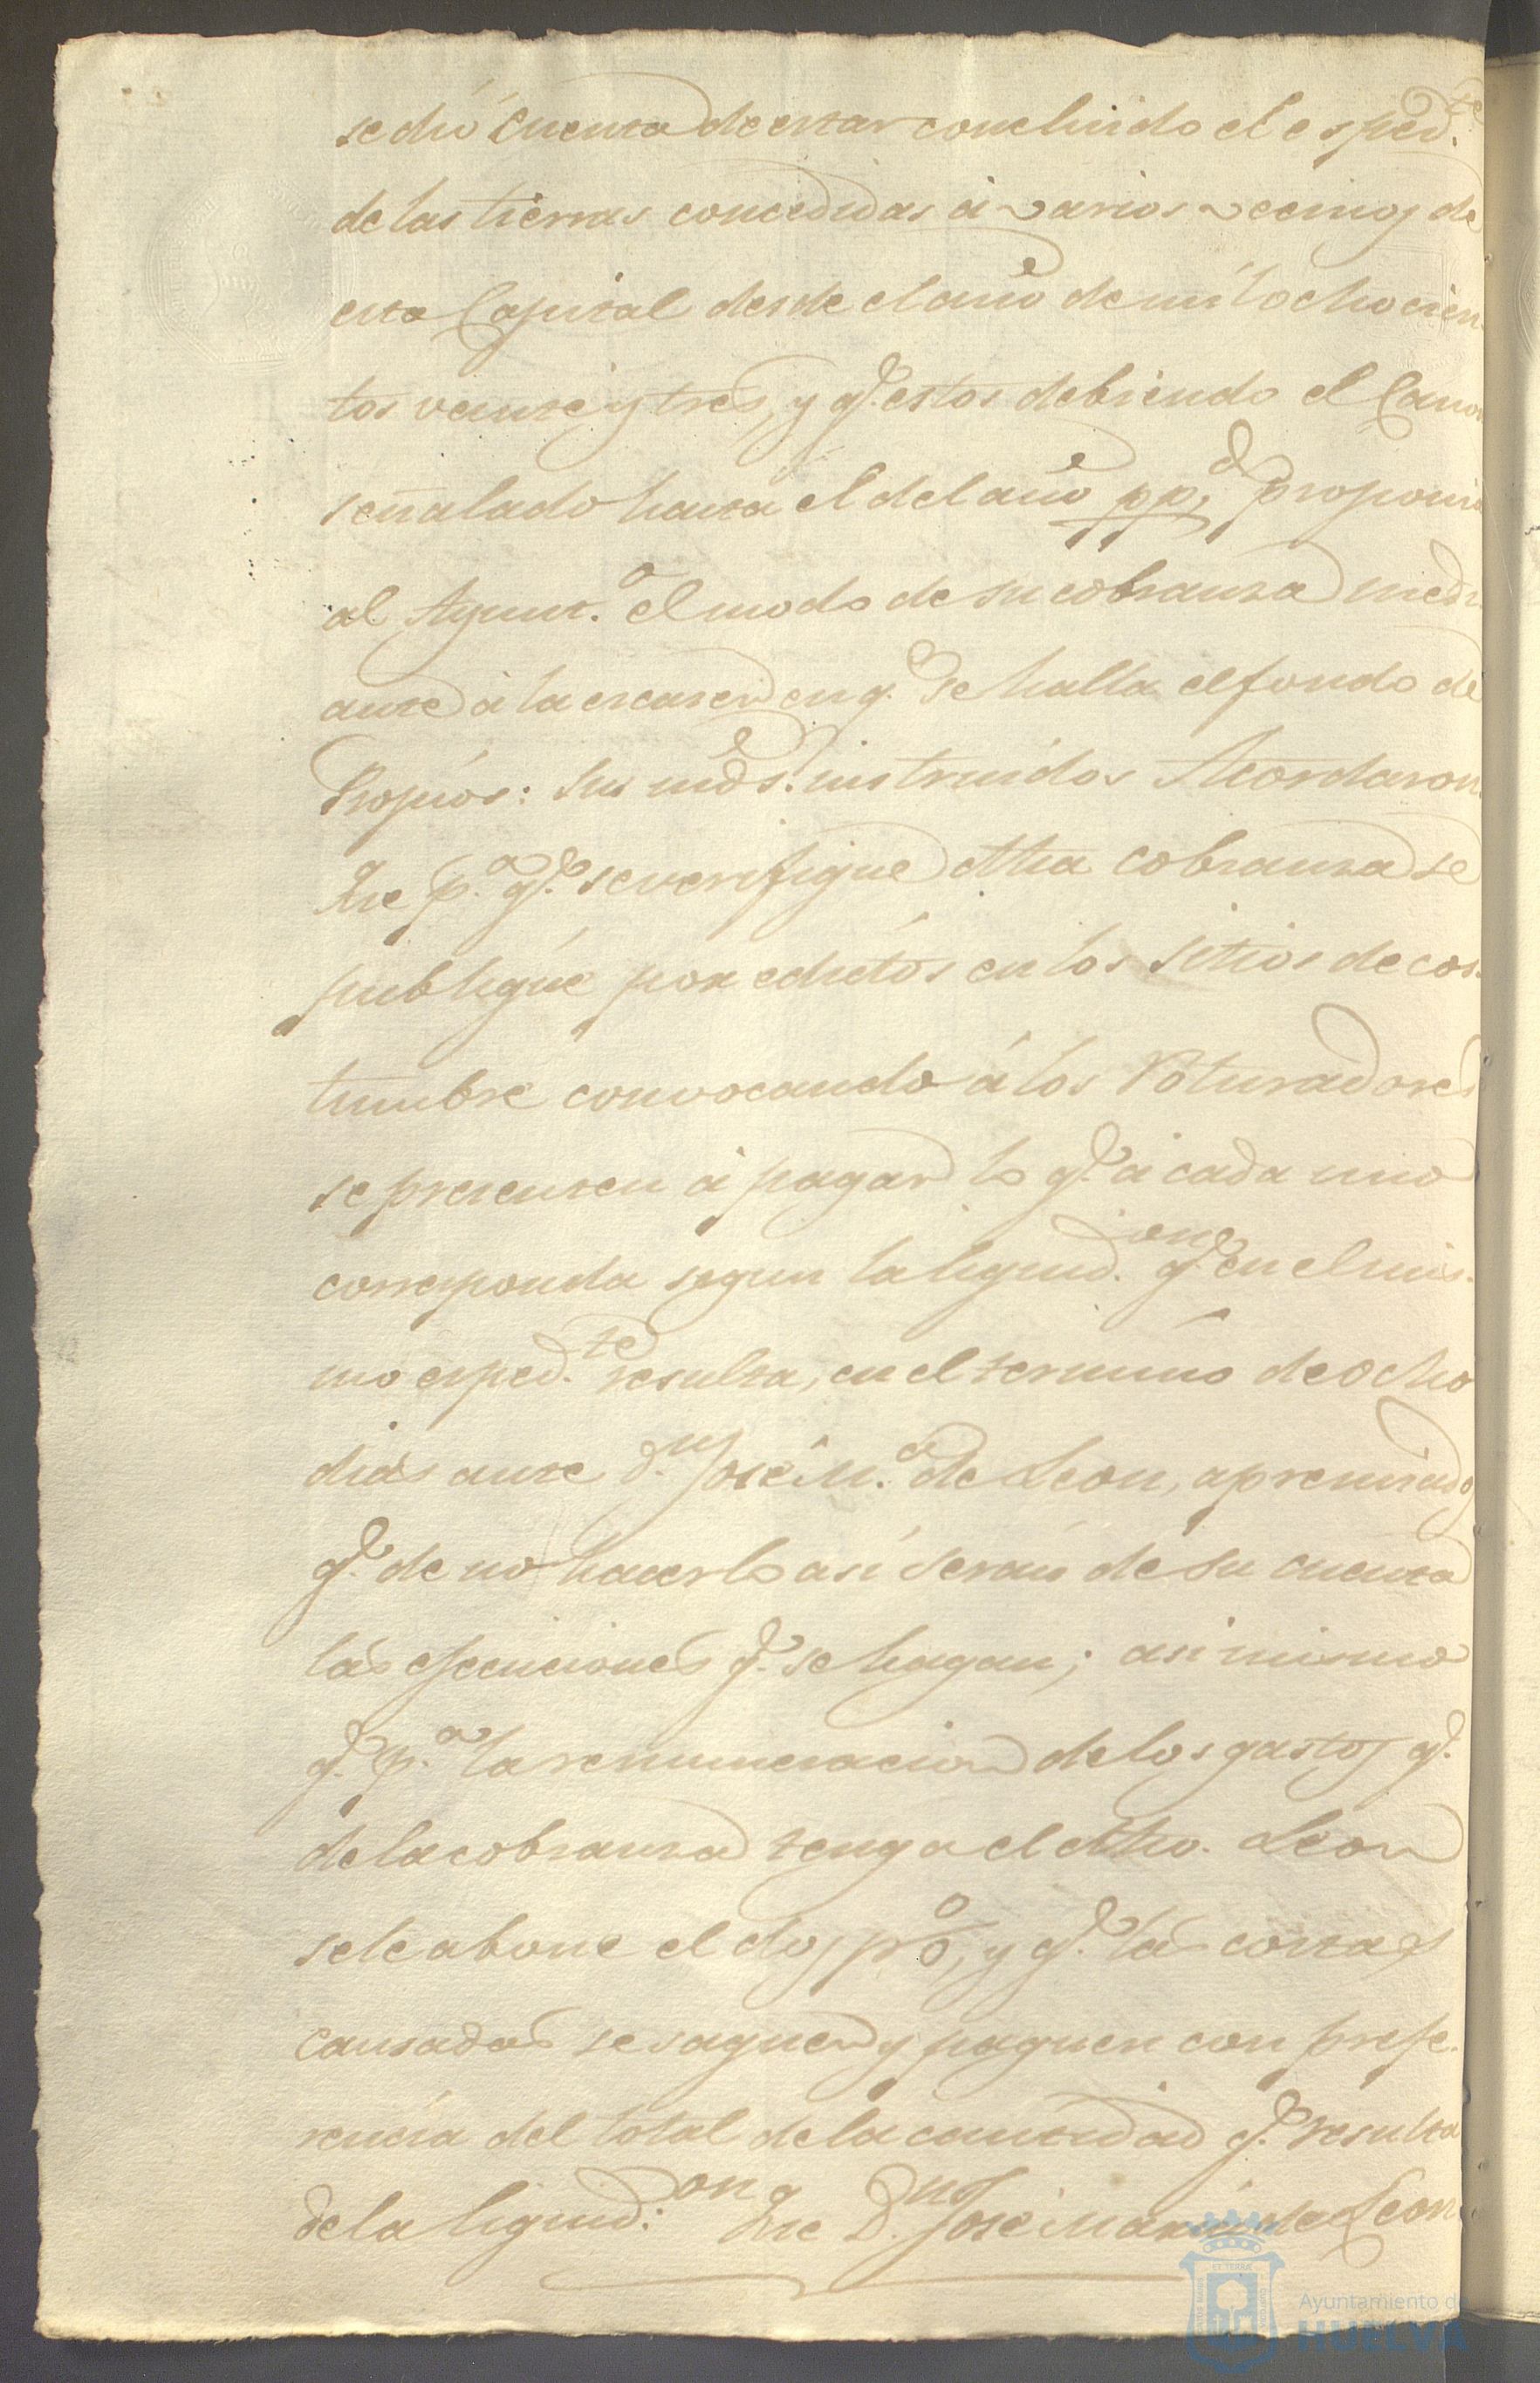 se dió cuenta de estar concluido el esped.te
de las tierras concedidas á varios vecinos de
esta Capital desde el año de mil ochocien-
tos veinte y tres, y q.e estos debiendo el Canon
señalado hasta el del año pp.do proponia
al Ayunt.o el modo de su cobranza medi
ante á la escasez en q.e se halla el fondo de
Propios: Sus mds. instruidos Acordaron.
Que p.a q.e se verifique dha cobranza se
publique por edictos en los sitios de cos-
tumbre convocando á los Roturadores
se presenten á pagar lo q.e á cada uno
corresponda segun la liquid.on q.e en el mis-
mo esped.te resulta, en el termino de ocho
dias ante D.n José M.a de Leon, apremiados
q.e de no hacerlo asi seran de su cuenta
las ejecuciones q.e se hagan; asi mismo
q.e p.a la remuneracion de los gastos q.e
de la cobranza tenga el dho. Leon
se le abone el dos p.o%, y q.e las costas
causadas se saquen y paguen con prefe-
rencia del total de la cantidad q.e resulta
de la liquid.on Que D.n José Maria de Leon
Ayuntamiento de
HUELVA